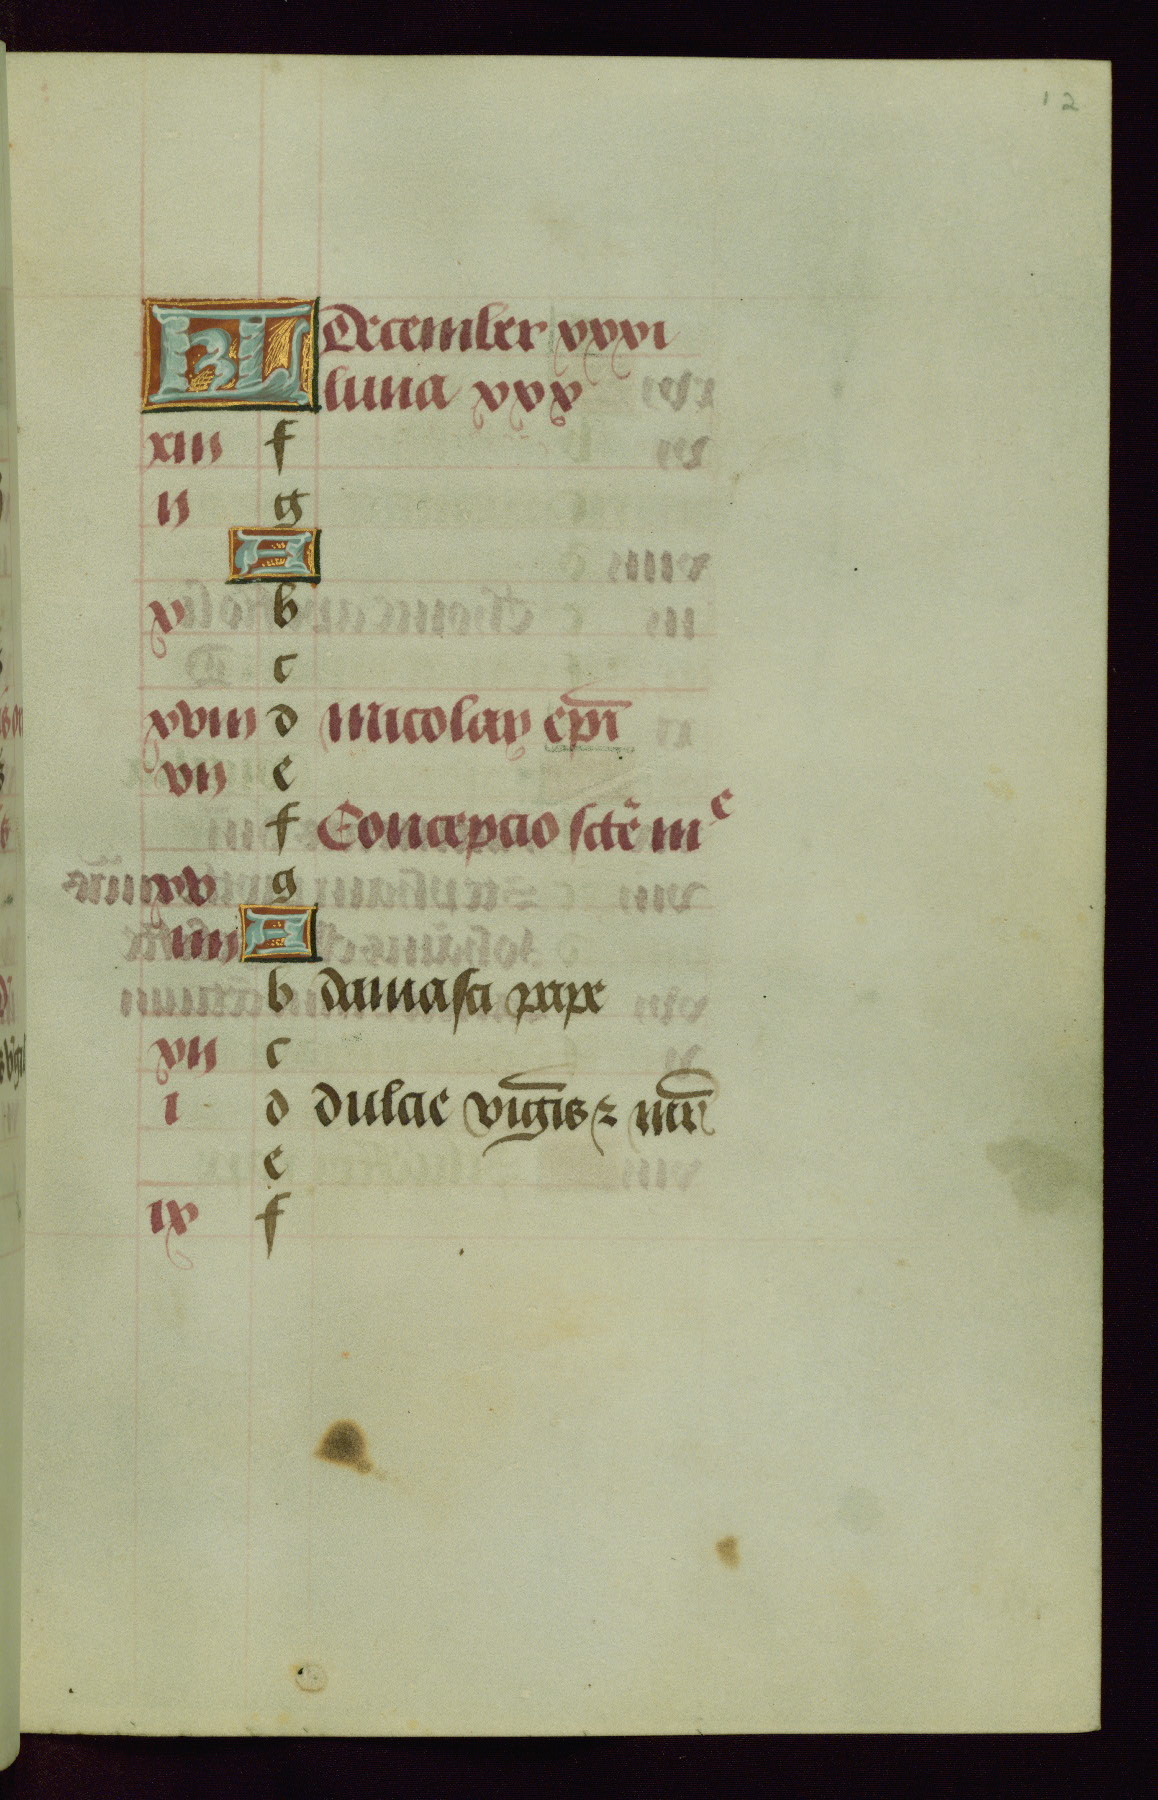 12
KL December xxxi
luna xxx
xiii f
ii g
A
x b
c
xviii d Nicolay epī
vii e
f Concepcio sctē m^e
xv g
iiii A
b damasci pape
xii c
i d dulcie virgīs ⁊ mr̄
e
ix f